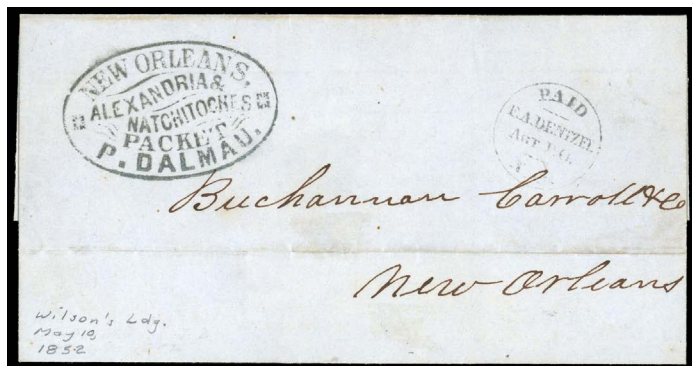 NEW ORLEANS,
ALEXANDRIA &
NATCHITOCHES
PACKET
P. DALMAU.
PAID
E.A. DENTZEL
AGT P.O.
Buchannan Carroll & Co
New Orleans
Wilson's Ldg.
May 10,
1852